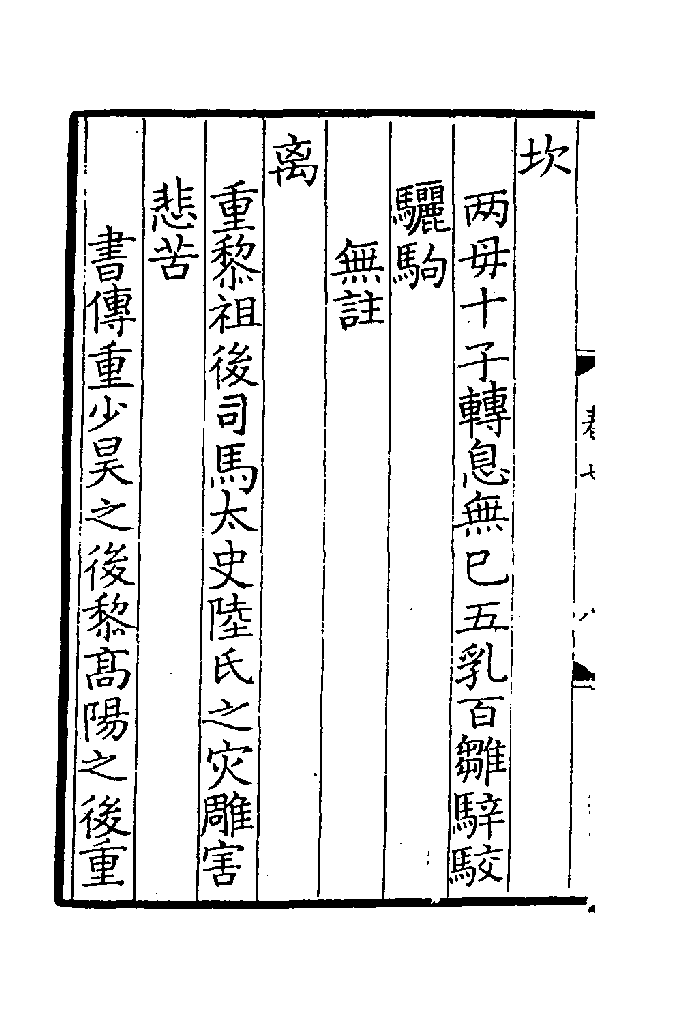 坎
两毋十子轉息無已五乳百雛騂駮
驪駒
無註
离
重黎祖後司馬太史陸氏之灾雕害
悲苦
書傳重少昊之後黎髙陽之後重